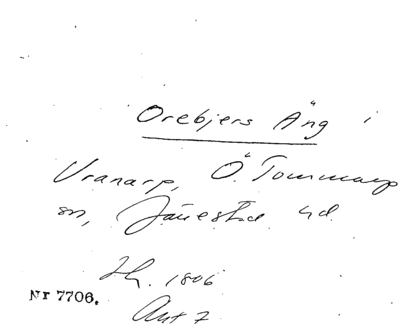 Orebjers Äng i
Vranarp, Ö. Tommarp
sn, Järrestad hd.
Lh. 1806
Nr 7706.
Akt 7